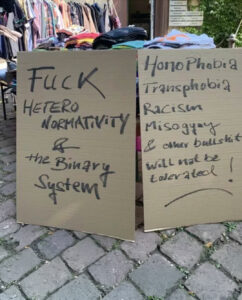 FUCK
HETERO
NORMATIVITY
&
the Binary
System
HomoPhobia
Transphobia
Racism
Misogyny
& other bullshit
will not be
tolerated !